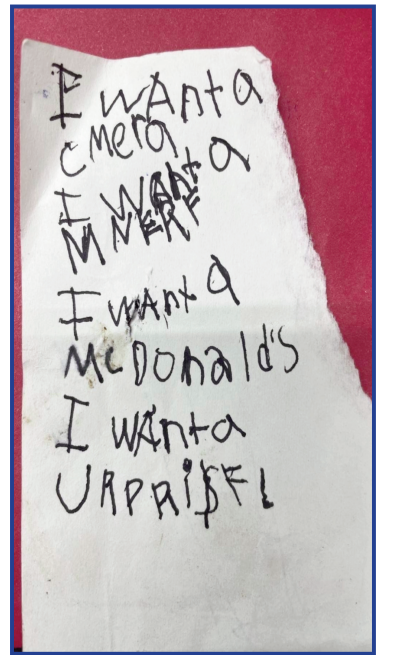 I wAnt a
cMera
I WANt a
M NERF
I wAnt A
McDonald's
I wAnt a
URPRISE!